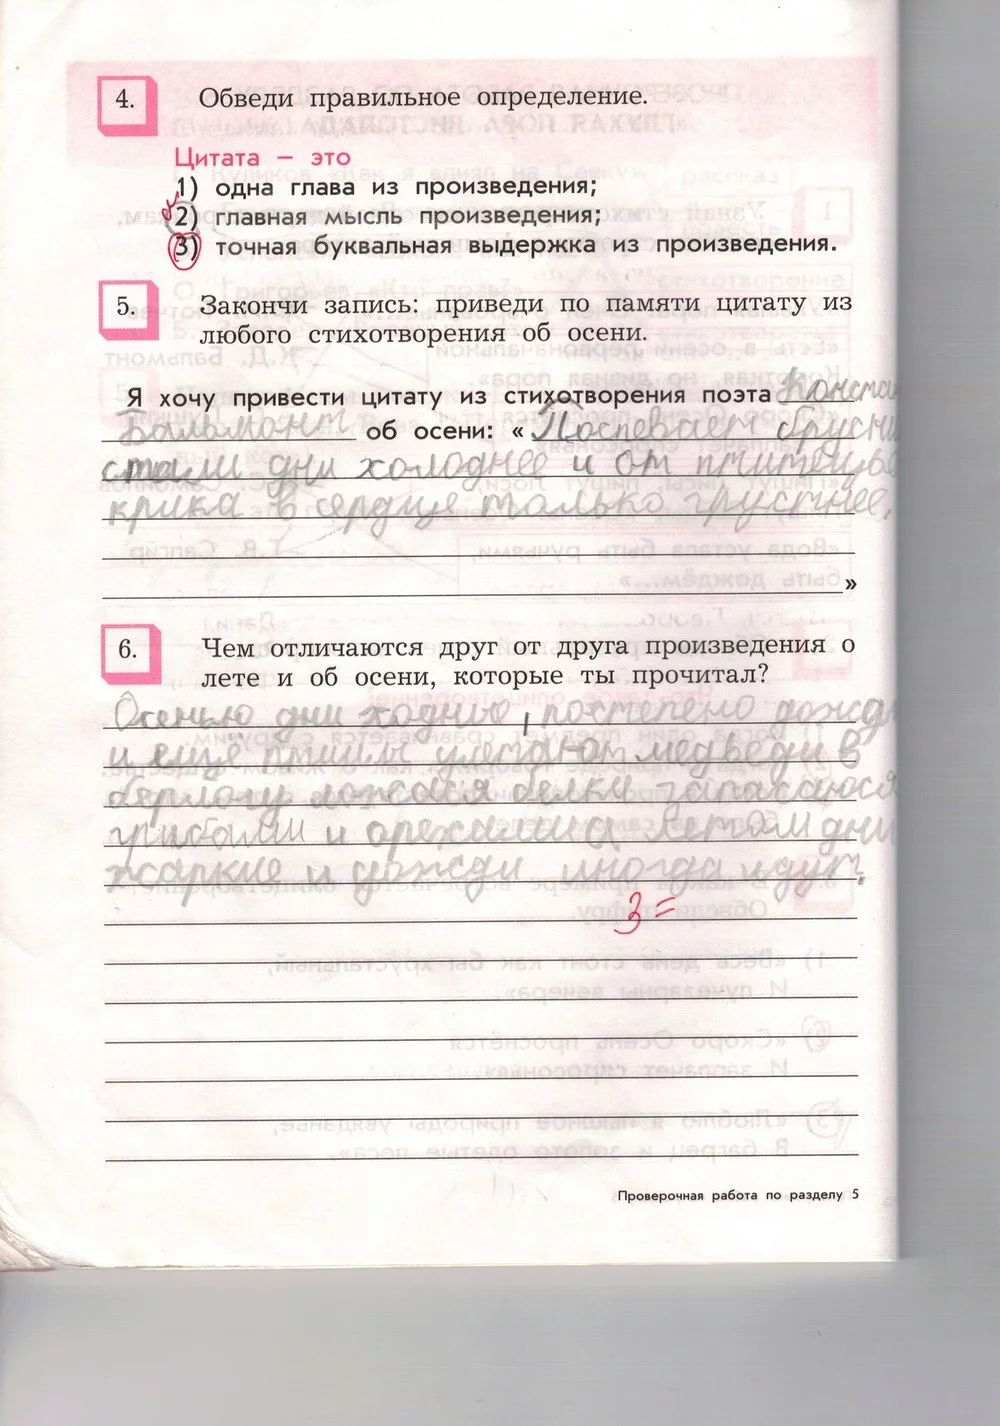 4. Обведи правильное определение.
Цитата – это
1) одна глава из произведения;
2) главная мысль произведения;
3) точная буквальная выдержка из произведения.
5. Закончи запись: приведи по памяти цитату из
любого стихотворения об осени.
Я хочу привести цитату из стихотворения поэта Конста
Бальмонт об осени: « Поспевает брусни
стали дни холоднее и от птичье
крика в сердце только грустнее.
»
6. Чем отличаются друг от друга произведения о
лете и об осени, которые ты прочитал?
Осенью дни постепено дожди
и ещё птицы улетают медведи в
берлогу ложатся белки запасаюся
грибами и орехами а летом дни
жаркие и дожди иногда идут.
3=
Проверочная работа по разделу 5